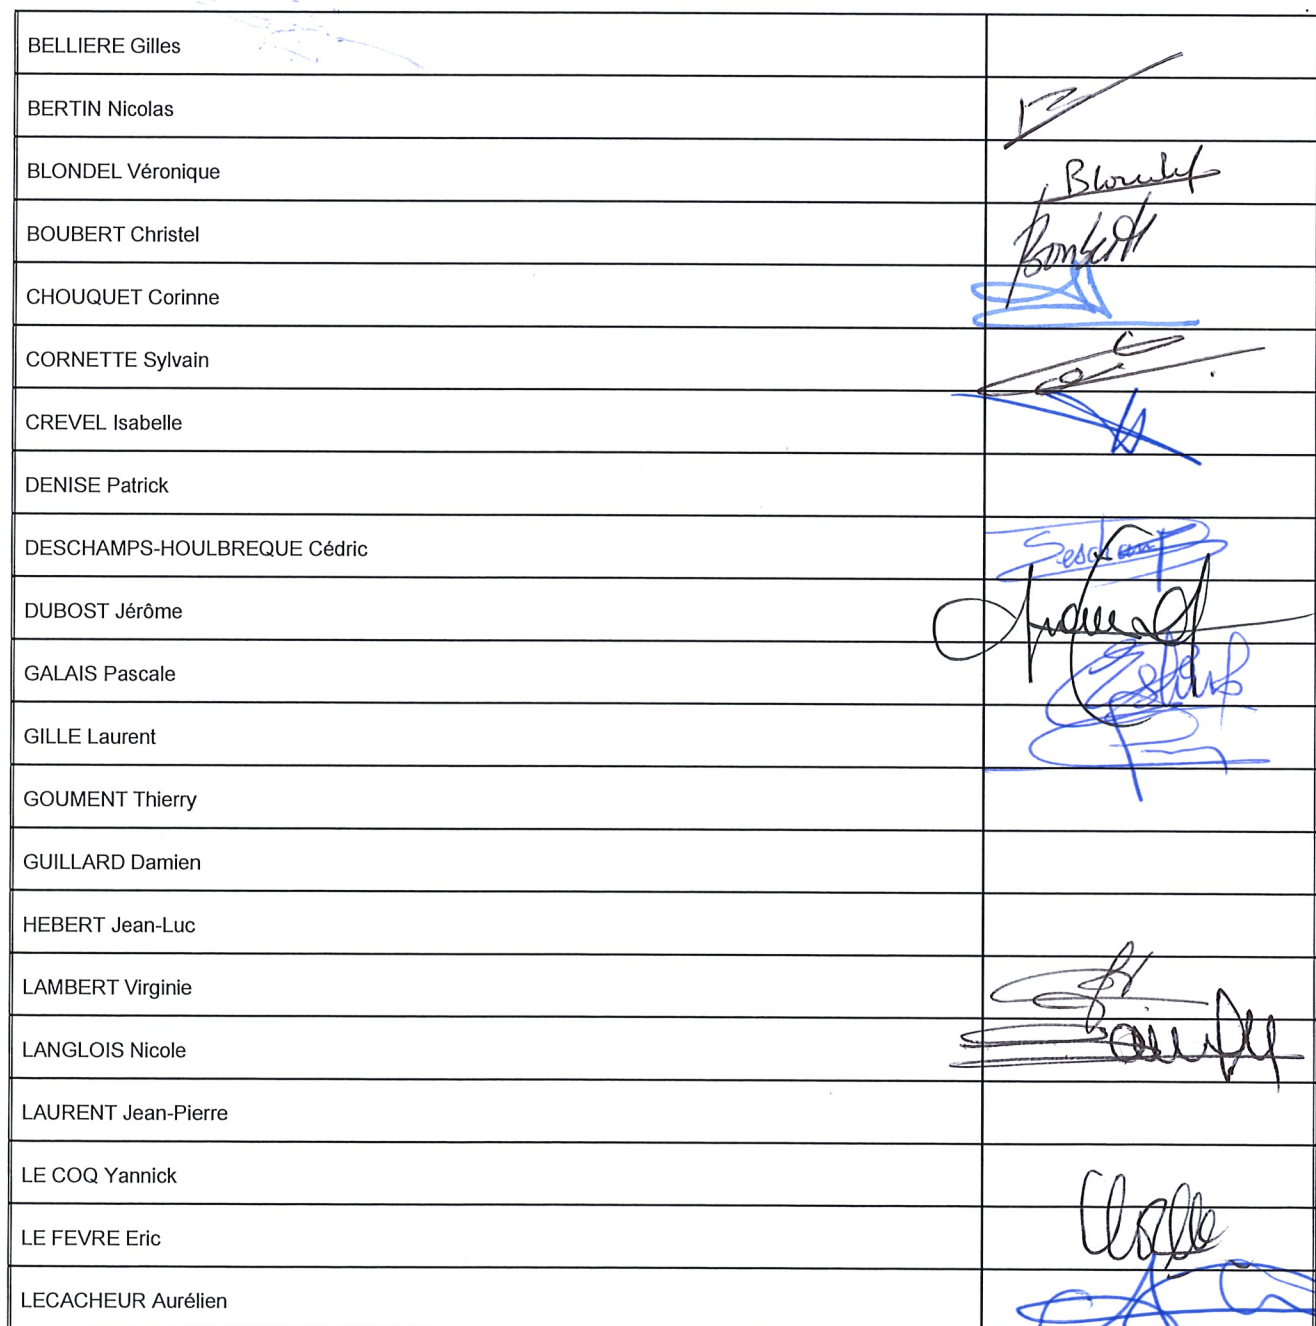 BELLIERE Gilles
BERTIN Nicolas
BLONDEL Véronique
Blondel
BOUBERT Christel
CHOUQUET Corinne
CORNETTE Sylvain
CREVEL Isabelle
DENISE Patrick
DESCHAMPS-HOULBREQUE Cédric
DUBOST Jérôme
GALAIS Pascale
GILLE Laurent
GOUMENT Thierry
GUILLARD Damien
HEBERT Jean-Luc
LAMBERT Virginie
LANGLOIS Nicole
LAURENT Jean-Pierre
LE COQ Yannick
LE FEVRE Eric
LECACHEUR Aurélien